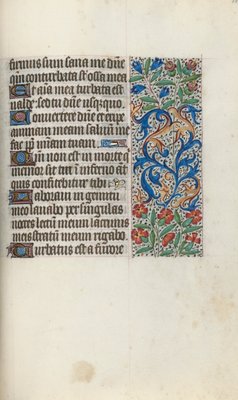 firmus sum sana me dñe
qm̃ conturbata st̃ ossa mea
Et aĩa mea turbata est
valde sed tu dñe usq̃quo.
Convertere dñe et eripe
animam meam salvũ me
fac p̃p m̃iam tuam.
Qm̃ non est in morte q̃
memor sit tui in inferno aũt
quis confitebitur tibi
Laboravi in gemitu
meo lavabo per singulas
noctes lectũ meum lacrimis
meis stratũ meum rigabo
Turbatus est a furore